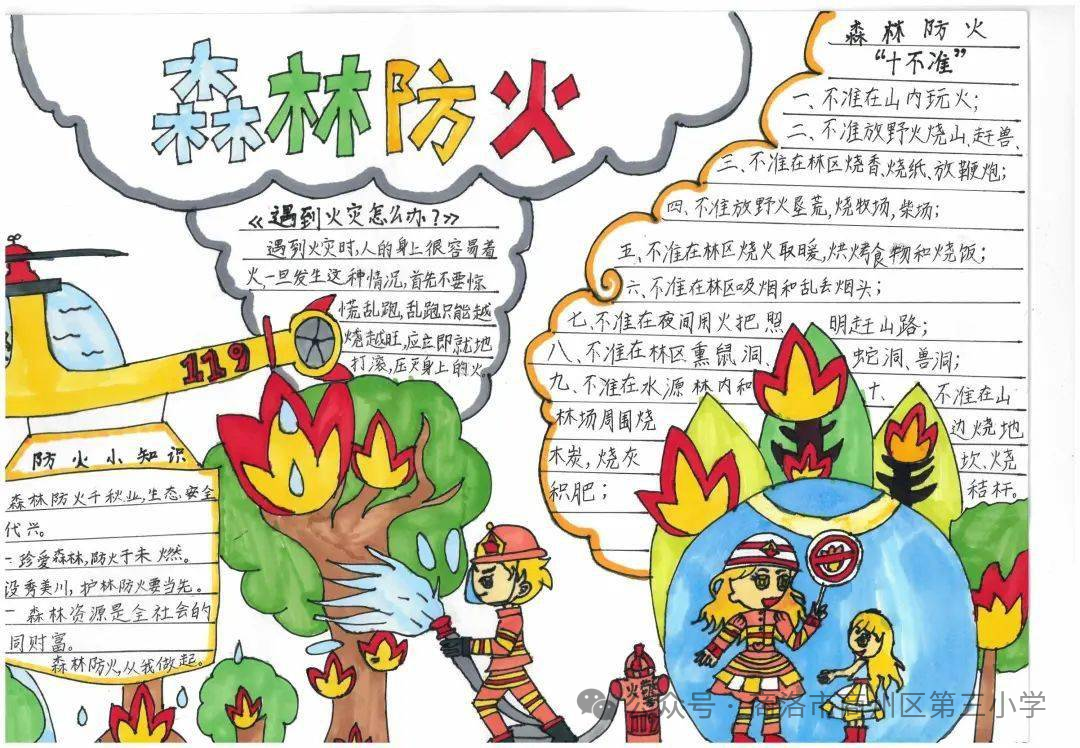 森林防火
《遇到火灾怎么办？》
遇到火灾时,人的身上很容易着
火,一旦发生这种情况,首先不要惊
慌乱跑,乱跑只能越
烧越旺,应立即就地
打滚,压灭身上的火
森林防火
“十不准”
一、不准在山内玩火;
二、不准放野火烧山、赶兽、
三、不准在林区烧香、烧纸、放鞭炮;
四、不准放野火垦荒,烧牧场,柴场;
五、不准在林区烧火取暖,烘烤食物和烧饭;
六、不准在林区吸烟和乱丢烟头;
七、不准在夜间用火把照明赶山路;
八、不准在林区熏鼠洞、蛇洞、兽洞;
九、不准在水源林内和
林场周围烧
木炭,烧灰
积肥;
十、不准在山
边烧地
坎、烧
秸秆。
119
防火小知识
森林防火千秋业,生态安全
代兴。
珍爱森林,防火于未燃。
设秀美川,护林防火要当先。
森林资源是全社会的
同财富。
森林防火,从我做起。
火警
众号·商洛市商州区第三小学